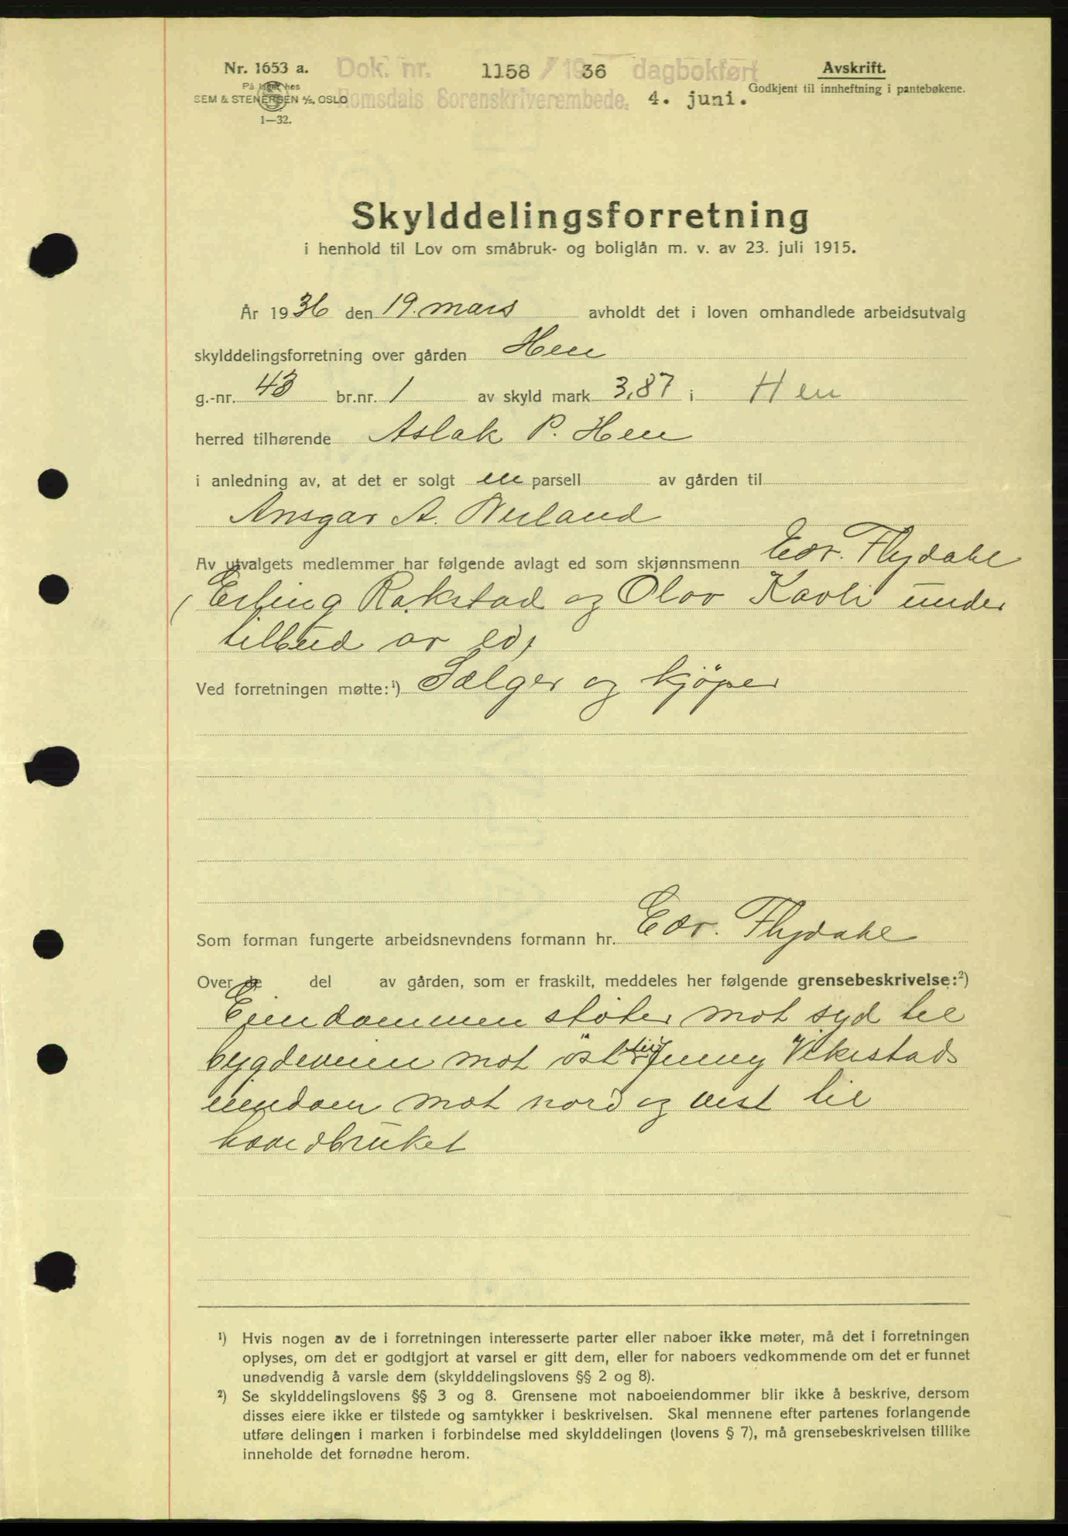 Nr. 1653 a.
På lager hos
SEM & STENERSEN A/S, OSLO
1—32.
Dok. nr. 1158 / 1936 dagbokført
Romsdals Sorenskriverembede, 4. juni.
Avskrift.
Godkjent til innheftning i pantebøkene.
Skylddelingsforretning
i henhold til Lov om småbruk- og boliglån m. v. av 23. juli 1915.
År 1936 den 19. mars avholdt det i loven omhandlede arbeidsutvalg
skylddelingsforretning over gården Hen
g.-nr. 43 br.nr. 1 av skyld mark 3,87 i Hen
herred tilhørende Aslak P. Hen
i anledning av, at det er solgt en parsell av gården til
Ansgar A. Neuland
Av utvalgets medlemmer har følgende avlagt ed som skjønnsmenn Edv. Flydahl
Erling Rakstad og Olav Kavli under
tilbud av ed,
Ved forretningen møtte:¹) Sælger og kjöper
Som forman fungerte arbeidsnevndens formann hr. Edv. Flydahl
Over de del av gården, som er fraskilt, meddeles her følgende grensebeskrivelse:²)
Eiendommen støter mot syd til
bygdeveien mot öst til Jenny Vikestads
eiendom mot nord og vest til
hovedbruket
¹) Hvis nogen av de i forretningen interesserte parter eller naboer ikke møter, må det i forretningen
oplyses, om det er godtgjort at varsel er gitt dem, eller for naboers vedkommende om det er funnet
unødvendig å varsle dem (skylddelingslovens §§ 2 og 8).
²) Se skylddelingslovens §§ 3 og 8. Grensene mot naboeiendommer blir ikke å beskrive, dersom
disses eiere ikke er tilstede og samtykker i beskrivelsen. Skal mennene efter partenes forlangende
utføre delingen i marken i forbindelse med skylddelingen (lovens § 7), må grensebeskrivelsen tillike
inneholde det fornødne herom.